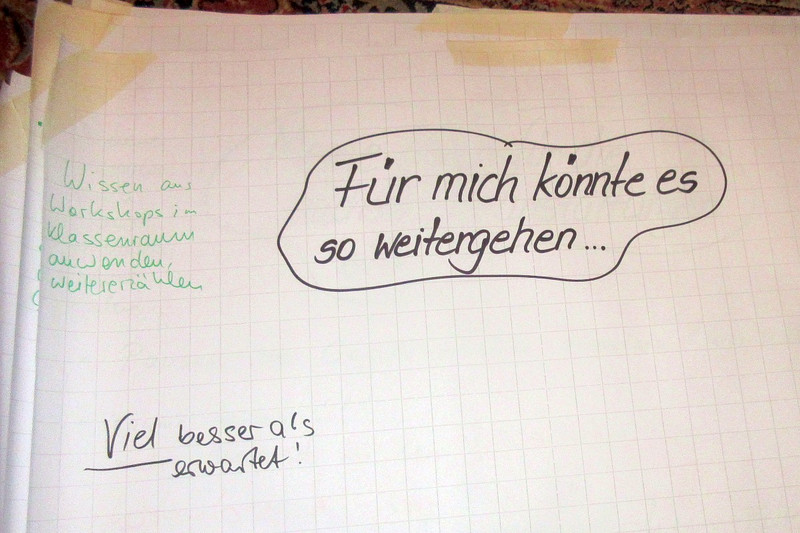 Für mich könnte es
so weitergehen...
Wissen aus
Workshops im
Klassenraum
anwenden,
weitererzählen
Viel besser als
erwartet!